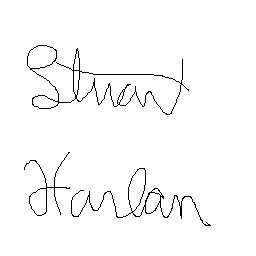 Stuart
Harlan